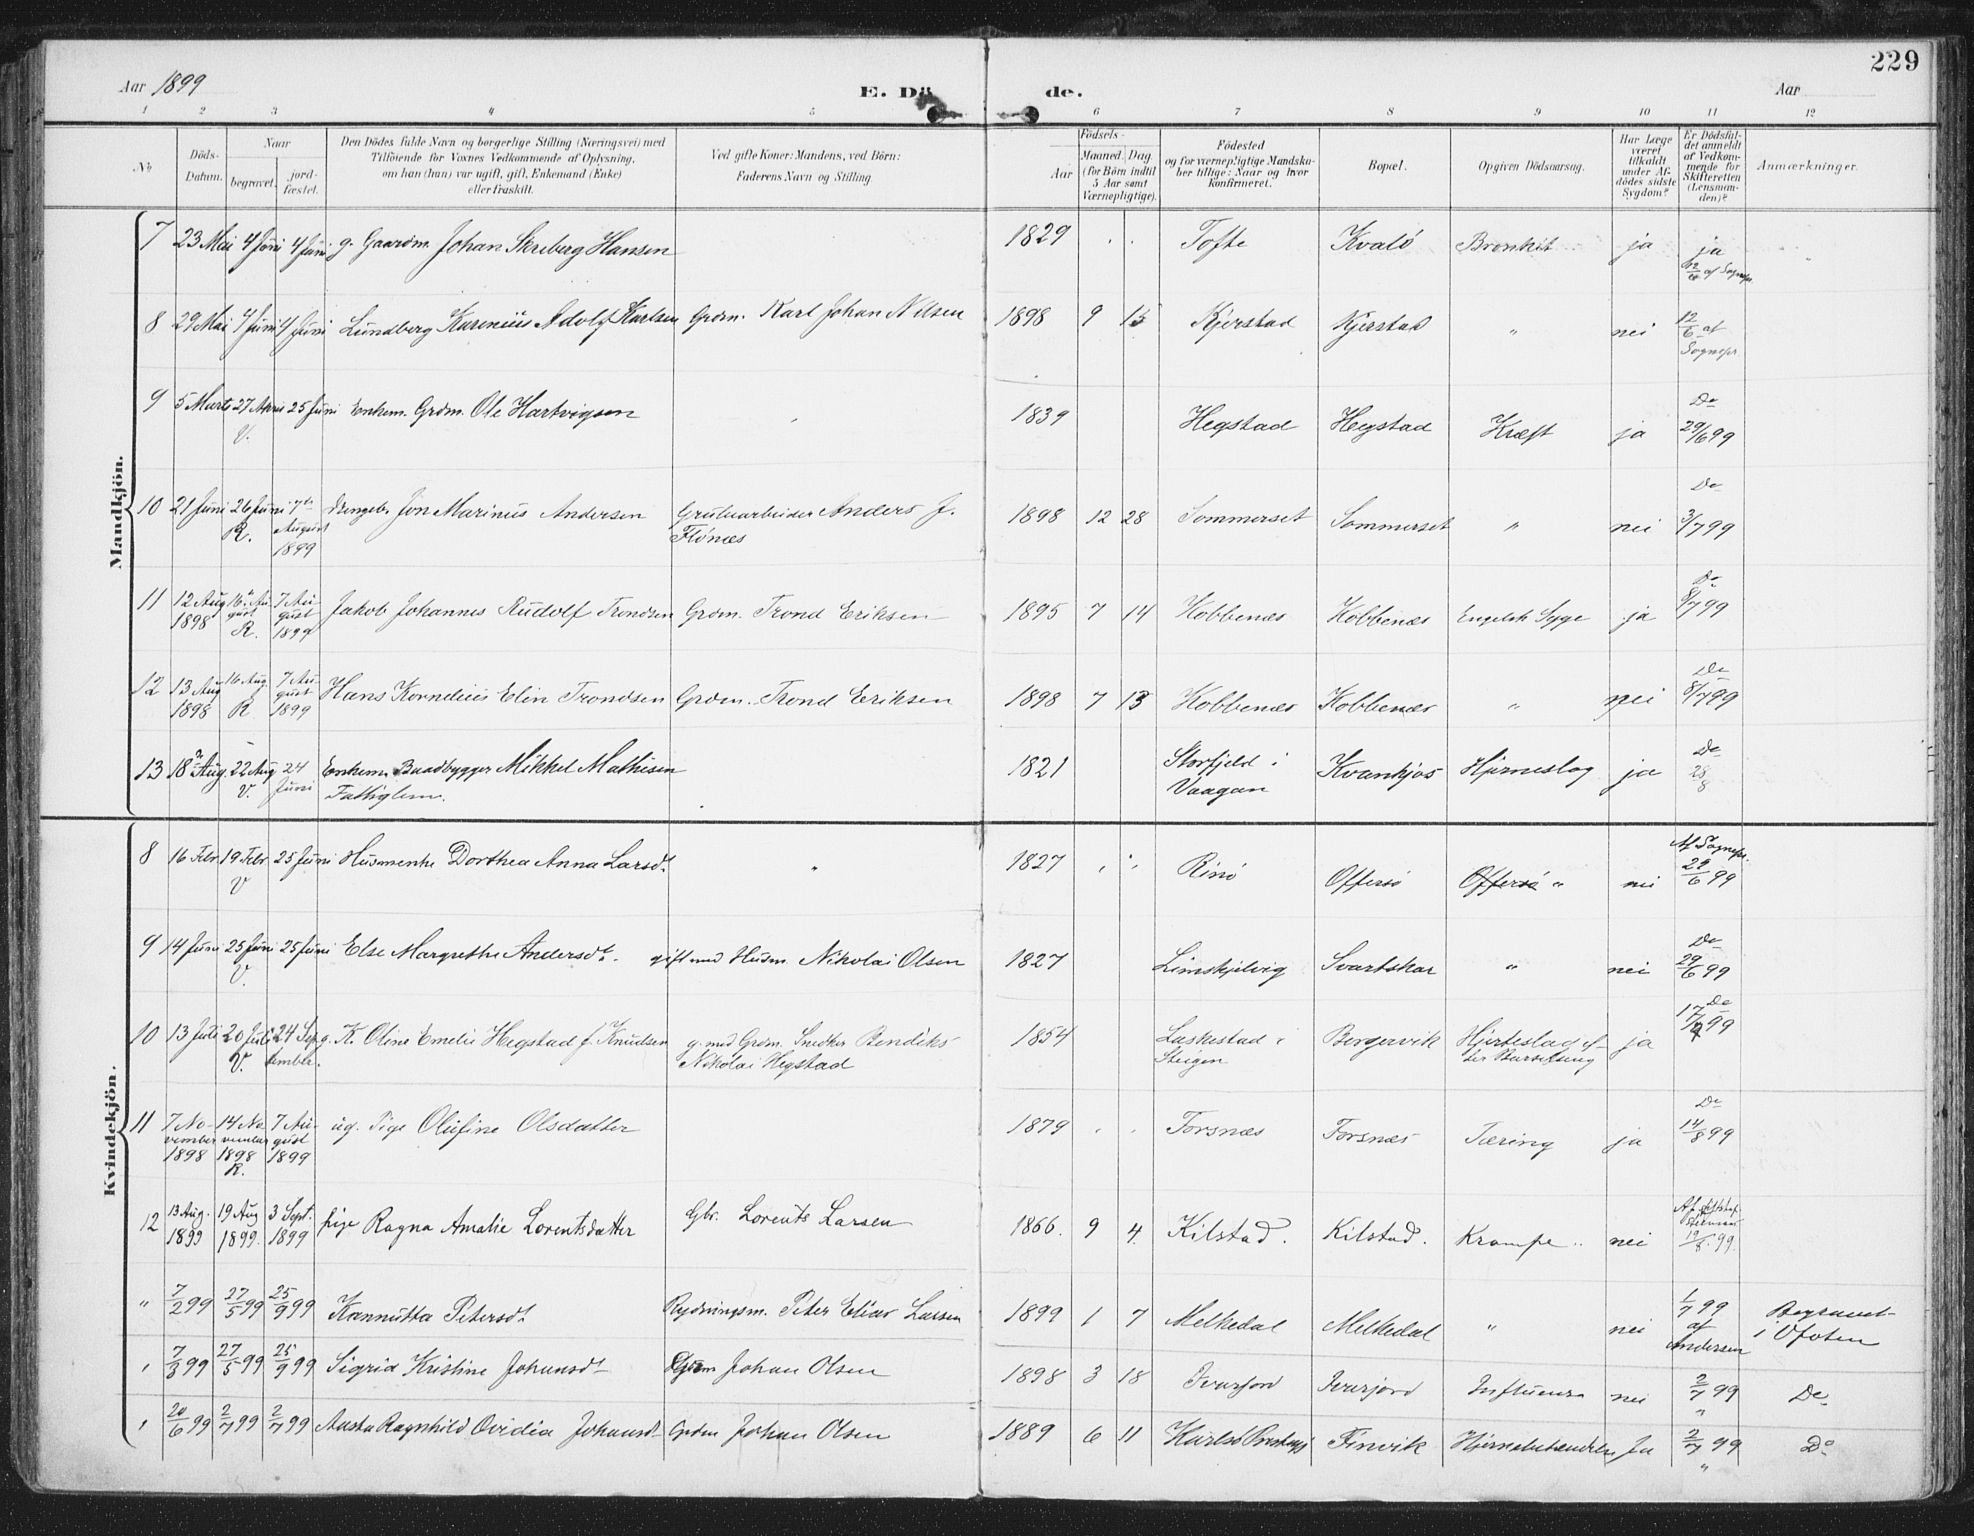 229
Aar 1899
E. Dö de.
Aar
1 2 3 4 5 6 7 8 9 10 11 12
No
Döds-Datum.
Naar
begravet.
jordfæstet.
Den Dödes fulde Navn og borgerlige Stilling (Næringsvei) med
Tilföiende for Voxnes Vedkommende af Oplysning,
om han (hun) var ugift, gift, Enkemand (Enke)
eller fraskilt.
Ved gifte Koner: Mandens, ved Börn:
Faderens Navn og Stilling.
Födsels-
Aar
Maaned. Dag
(for Börn indtil
5 Aar samt
Værnepligtige).
Födested
og for værnepligtige Mandska-
ber tillige: Naar og hvor
konfirmeret.
Bopæl.
Opgiven Dödsaarsag.
Har Læge
været
tilkaldt
under Af-
dödes sidste
Sygdom?
Er Dödsfal-
det anmeldt
af Vedkom-
mende for
Skifteretten
(Lensman-
den)?
Anmærkninger.
Mandkjön.
7 23 Mai 4 Juni 4 Juni g. Gaardm. Johan Skriberg Hansen 1829 Tofte Kvalö Bronkit ja ja
12/6 af Sognepr.
8 29 Mai 4 Juni 4 Juni Lundberg Karenius Adolf Karlsen Grdm. Karl Johan Nilsen 1898 9 15 Kjerstad Kjerstad " nei 12/6 af
Sognepr.
9 5 Marts 27 April 25 Juni Enkem. Grdm. Ole Hartvigsen 1839 Hegstad Hegstad Kræft ja Do
V. 29/6 99
10 21 Juni 26 Juni 7de Drengeb. Jon Marinus Andersen Grubearbeider Anders J. 1898 12 28 Sommerset Sommerset " nei Do
R. August Flönæs 3/7 99
1899
11 12 Aug 16 Au- 7 Au- Jakob Johannes Rudolf Trondsen Grdm. Trond Eriksen 1895 7 14 Kobbenæs Kobbenæs Engelsk Syge ja Do
1898 gust gust 8/7 99
R. 1899
12 13 Aug 16 Aug. 7 Au- Hans Kornelius Elin Trondsen Grdm. Trond Eriksen 1898 7 13 Kobbenæs Kobbenæs " nei Do
1898 R gust 8/7 99
1899
13 18 Aug. 22 Aug 24 Enkem. Baadbygger Mikkel Mathisen 1821 Storfjeld i Kvankjos Hjerneslag ja Do
V. Juni Fattiglem. Vaagan 28/8
Kvindekjön.
8 16 Febr 19 Febr 25 Juni Husmenke Dorthea Anna Larsdt. " 1827 Rinö Offersö Offersö " nei Af Sognepr.
V 29/6 99
9 14 Juni 25 Juni 25 Juni Else Margrethe Andersdt. gift med Husm. Nikolai Olsen 1827 Limskjelvig Svartskar " nei Do
V. 29/6 99
10 13 Juli 20 Juli 24 Sep- g. K. Oline Emelie Hegstad f. Knudsen g. med Grdm. Snedker Bendiks 1854 Laskestad i Bergervik Hjerteslag ef- ja Do
V. tember. Nikolai Hegstad Steigen ter Barselseng 17/ 99
11 7 No- 14 No- 7 Au- ug. Pige Olufine Olsdatter 1879 Forsnæs Forsnæs Tæring ja Do
vember vember gust 14/8 99
1898 1898 1899
R.
12 13 Aug. 19 Aug 3 Sept. pige Ragna Amalie Lorentsdatter Gbr. Lorents Larsen 1866. 9 4. Kilstad. Kilstad. Krampe nei
1899 1899. 1899 19/8 99.
" 7/2 99 27/5 99 25/9 99 Kannutta Petersdt Rydningsm. Peter Elias Larsen 1899 1 7 Melkedal Melkedal " nei 1/7 99 Begravet
af i Ofoten
Andersen
" 7/3 99 27/5 99 25/9 99 Sigrid Kristine Johansdt Grdm Johan Olsen 1898 3 18 Ivarjord Ivarjord Influenza nei 2/7 99 Do
"
" 20/6 99 2/7 99 2/7 99 Aasta Ragnhild Ovidia Johansdt Grdm Johan Olsen 1889 6 11 Karlsö Finvik Hjernebetændelse Ja 2/7 99 Do
"